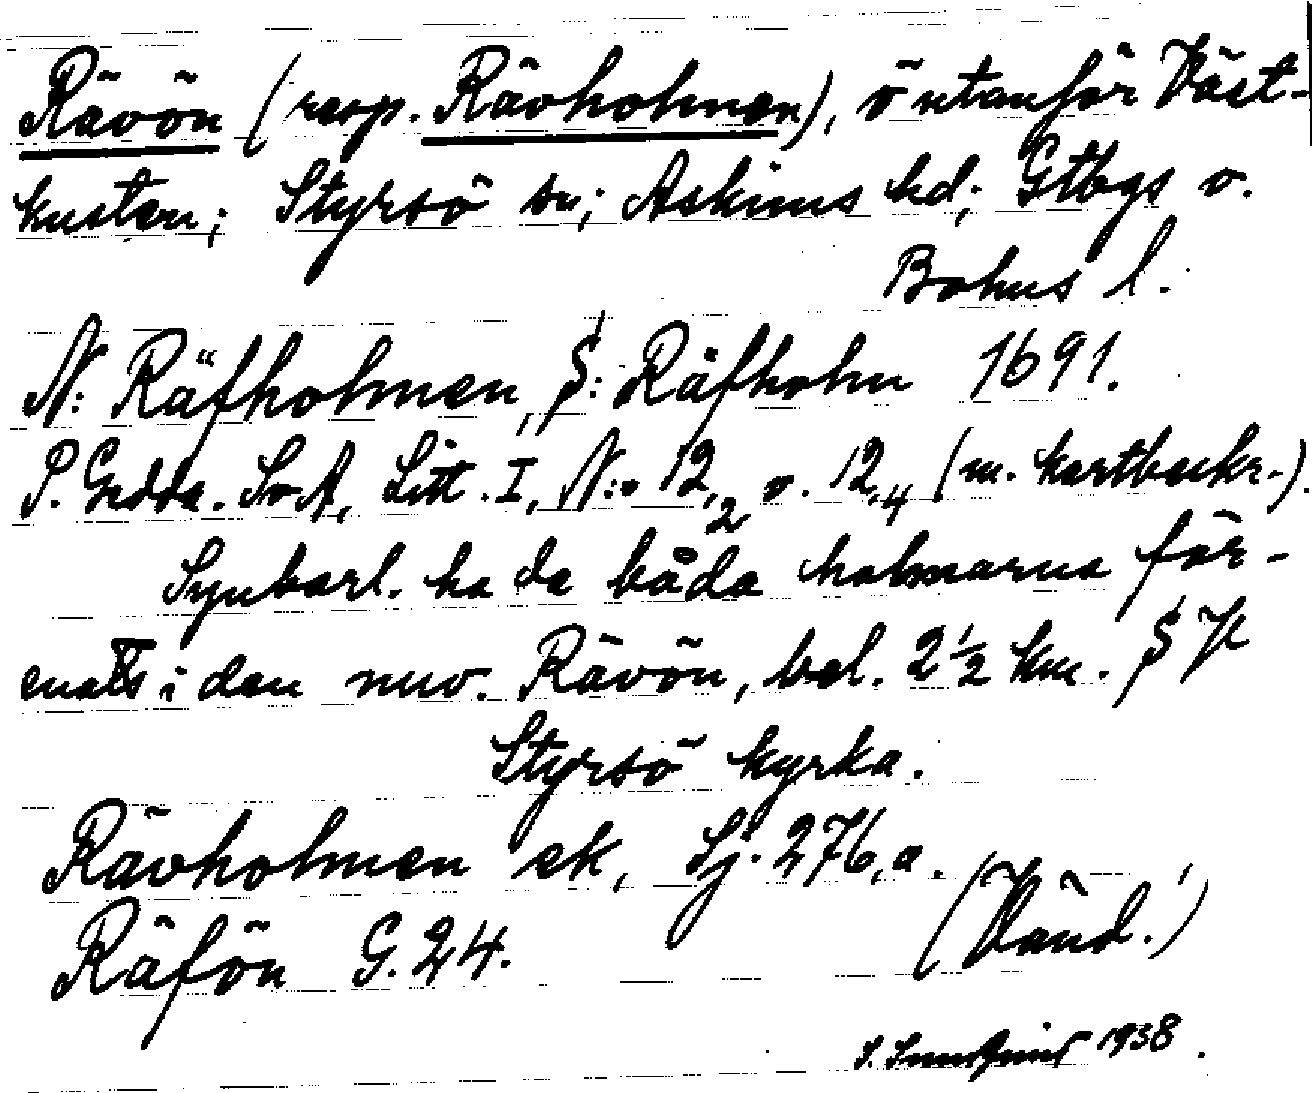 Rävön (resp. Rävholmen), ö utanför Väst-
kusten; Styrsö sn; Askims hd; Gtbgs o.
Bohus l.
N: Räfholmen, S: Räfholm 1691.
P. Gedda. SvA, Litt. I, N:o 12,2 o. 12,4 (m. kartbeskr.).
Synbarl. ha de båda holmarna för-
enats i den nuv. Rävön, bel. 2½ km. S V
Styrsö kyrka.
Rävholmen ek, Sj. 276,a.
Räfön G. 24. (Vänd!)
1938.